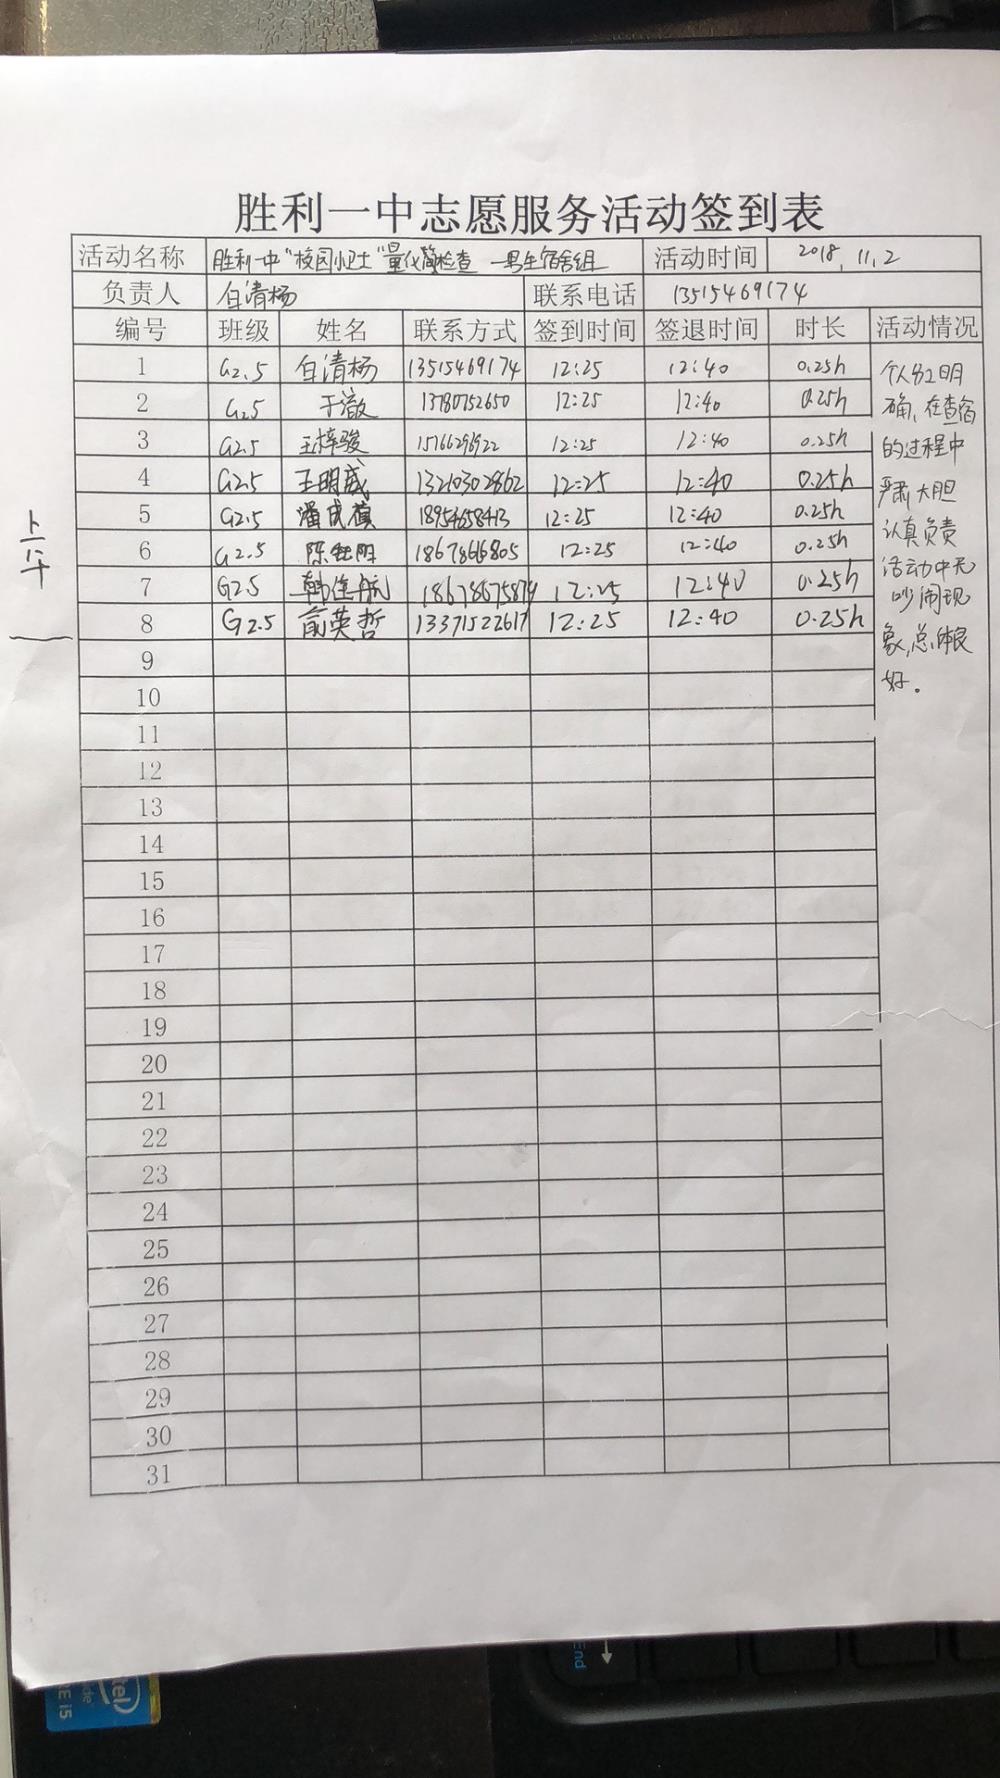 胜利一中志愿服务活动签到表
活动名称 胜利一中"校园小卫士"量化简检查 — 男生宿舍组 活动时间 2018.11.2
负责人 白清杨 联系电话 13515469174
编号 班级 姓名 联系方式 签到时间 签退时间 时长 活动情况
1 G2.5 白清杨 13515469174 12:25 12:40 0.25h
2 G2.5 于澈 13780752650 12:25 12:40 0.25h
3 G2.5 王梓骏 12:25 12:40 0.25h
4 G2.5 王明威 13210302862 12:25 12:40 0.25h
5 G2.5 潘成 18954658413 12:25 12:40 0.25h
6 G2.5 陈 阳 18678616805 12:25 12:40 0.25h
7 G2.5 韩佳航 18678675874 12:25 12:40 0.25h
8 G2.5 俞英哲 13371522617 12:25 12:40 0.25h
个人分工明
确,在查宿
的过程中
严肃大胆
认真负责
活动中无
吵闹现
象,总体良
好。
上午
9
10
11
12
13
14
15
16
17
18
19
20
21
22
23
24
25
26
27
28
29
30
31
End
intel
i5